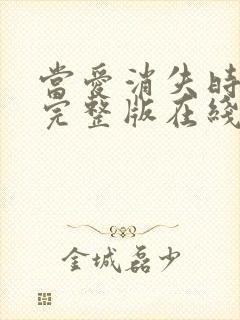 當愛消失時
完整版在綫
金城磊少